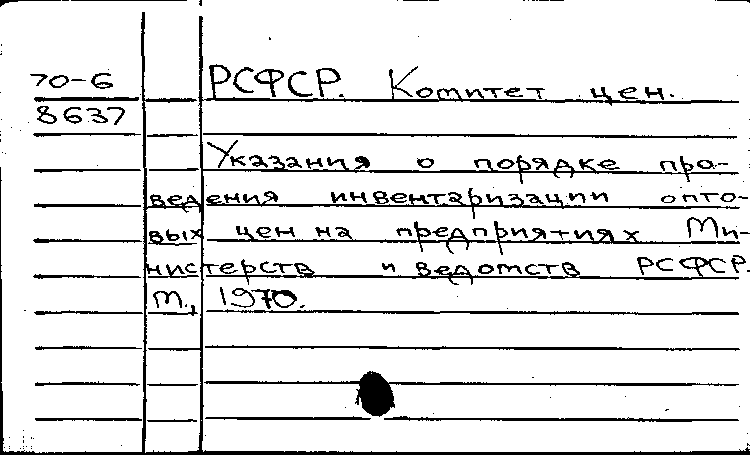 70-6 РСФСР. Комитет цен.
8637
Указания о порядке про-
ведения инвентаризации опто-
вых цен на предприятиях Ми-
нистерств и ведомств РСФСР.
М., 1970.